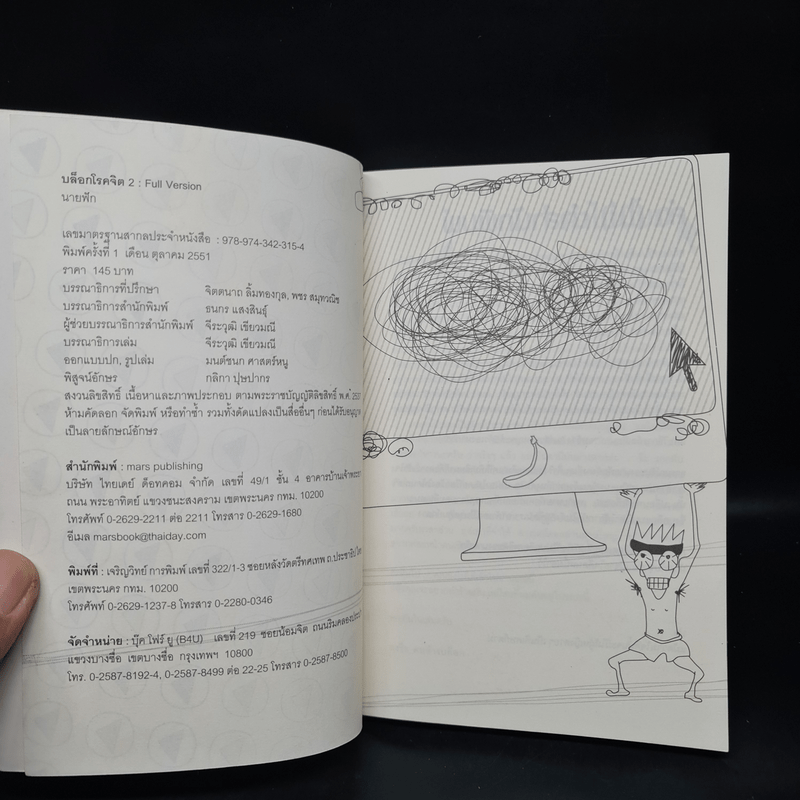 บล็อกโรคจิต 2 : Full Version
นายพัก
เลขมาตรฐานสากลประจำหนังสือ : 978-974-342-315-4
พิมพ์ครั้งที่ 1 เดือน ตุลาคม 2551
ราคา 145 บาท
บรรณาธิการที่ปรึกษา จิตตนาถ ลิ้มทองกุล, พชร สมุทวณิช
บรรณาธิการสำนักพิมพ์ ธนกร แสงสินธุ์
ผู้ช่วยบรรณาธิการสำนักพิมพ์ จีระวุฒิ เขียวมณี
บรรณาธิการเล่ม จีระวุฒิ เขียวมณี
ออกแบบปก, รูปเล่ม มนต์ชนก ศาสตร์หนู
พิสูจน์อักษร กลิกา ปุษปากร
สงวนลิขสิทธิ์ เนื้อหาและภาพประกอบ ตามพระราชบัญญัติลิขสิทธิ์ พ.ศ.
ห้ามคัดลอก จัดพิมพ์ หรือทำซ้ำ รวมทั้งดัดแปลงเป็นสื่ออื่นๆ ก่อนได้รับ
เป็นลายลักษณ์อักษร
สำนักพิมพ์ : mars publishing
บริษัท ไทยเดย์ ด็อทคอม จำกัด เลขที่ 49/1 ชั้น 4 อาคารบ้านเจ้าพระยา
ถนน พระอาทิตย์ แขวงชนะสงคราม เขตพระนคร กทม. 10200
โทรศัพท์ 0-2629-2211 ต่อ 2211 โทรสาร 0-2629-1680
อีเมล marsbook@thaiday.com
พิมพ์ที่ : เจริญวิทย์ การพิมพ์ เลขที่ 322/1-3 ซอยหลังวัดตรีทศเทพ ถ.ประชาธิปไตย
เขตพระนคร กทม. 10200
โทรศัพท์ 0-2629-1237-8 โทรสาร 0-2280-0346
จัดจำหน่าย : บุ๊ค โฟร์ ยู (B4U) เลขที่ 219 ซอยน้อมจิต ถนนริมคลองประปา
แขวงบางซื่อ เขตบางซื่อ กรุงเทพฯ 10800
โทร. 0-2587-8192-4, 0-2587-8499 ต่อ 22-25 โทรสาร 0-2587-8500